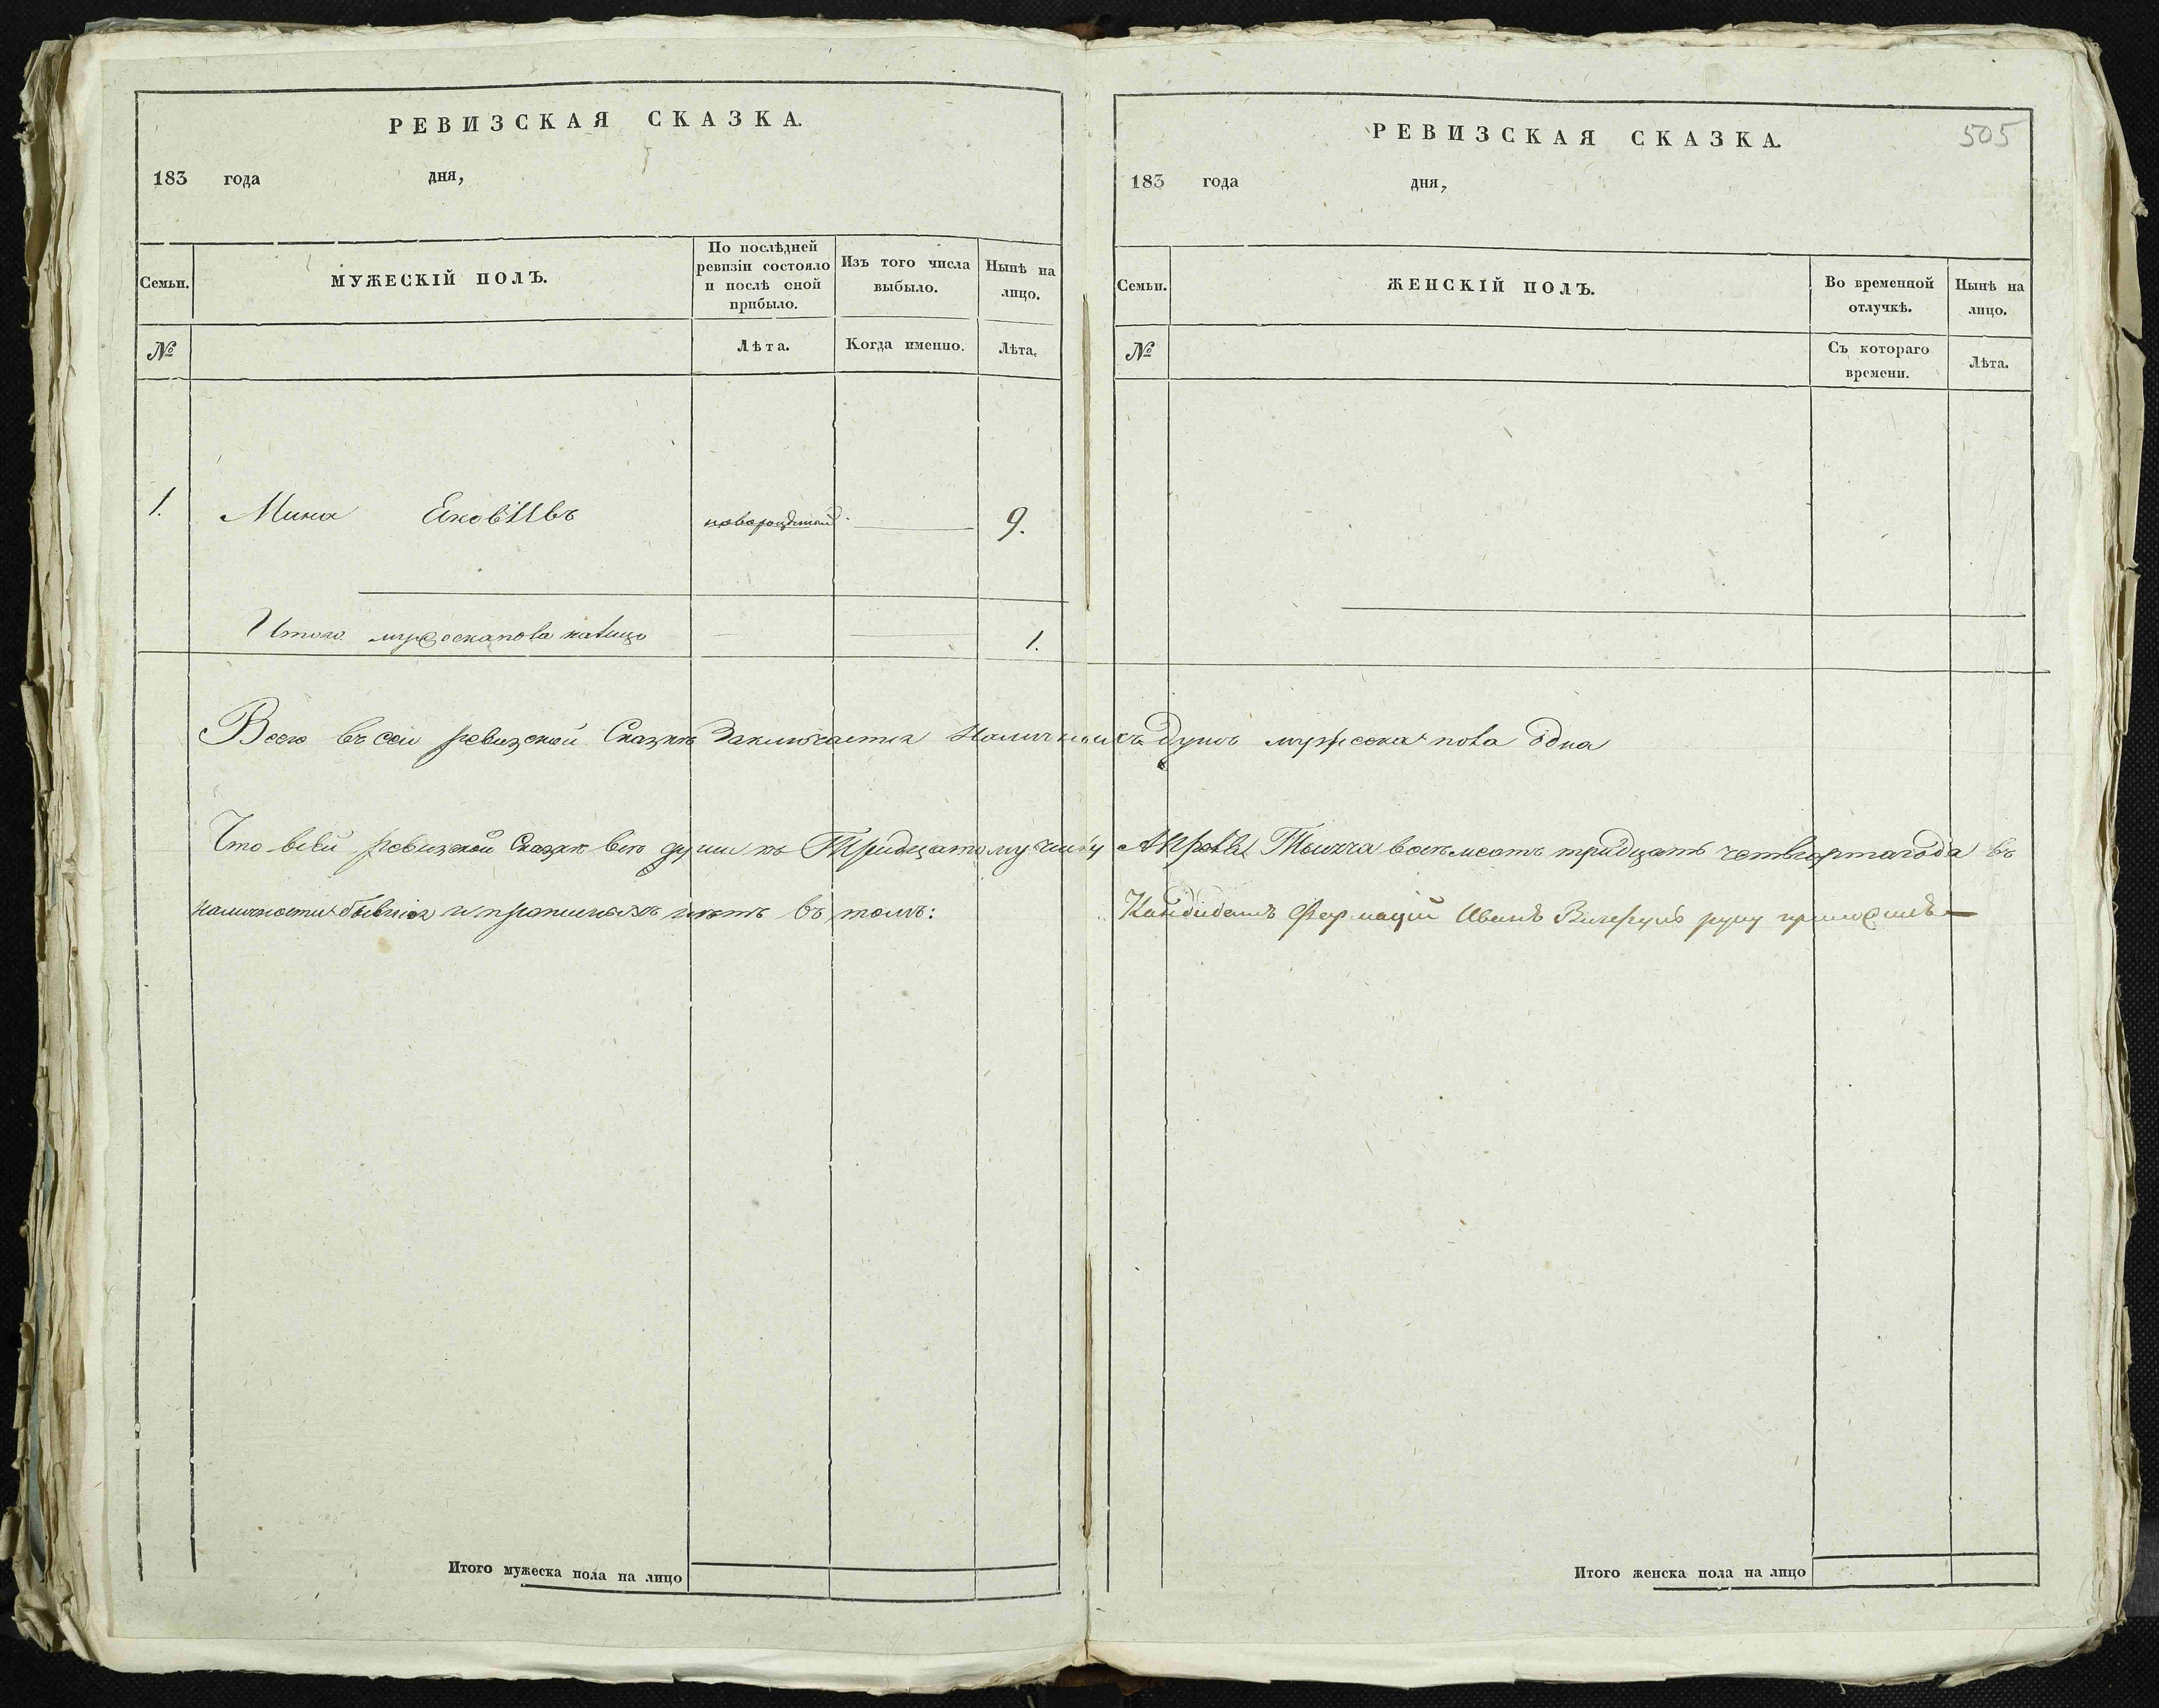 РЕВИЗСКАЯ СКАЗКА.
183 года дня,
Семьи. МУЖЕСКІЙ ПОЛЪ. По послѣдней ревизіи состояло и послѣ оной прибыло. Изъ того числа выбыло. Нынѣ на лицо.
№ Лѣта. Когда именно. Лѣта.
1. Мина новорожденный 9.
Итого мужеска пола налицо 1.
Итого мужеска пола на лицо
505
РЕВИЗСКАЯ СКАЗКА.
183 года дня,
Семьи. ЖЕНСКІЙ ПОЛЪ. Во временной отлучкѣ. Нынѣ на лицо.
№ Съ котораго времени. Лѣта.
Всего въ сей ревизской Сказкѣ Заключается Наличныхъ душъ мужеска пола одна
Что всей ревизской Сказкѣ всѣ души къ Тридцатому числу Апрѣля Тысяча восемсотъ тридцать четвертагода въ
наличности бывшія и прописныхъ нѣтъ въ томъ: Кандидатъ Иванъ руку приложилъ
Итого женска пола на лицо